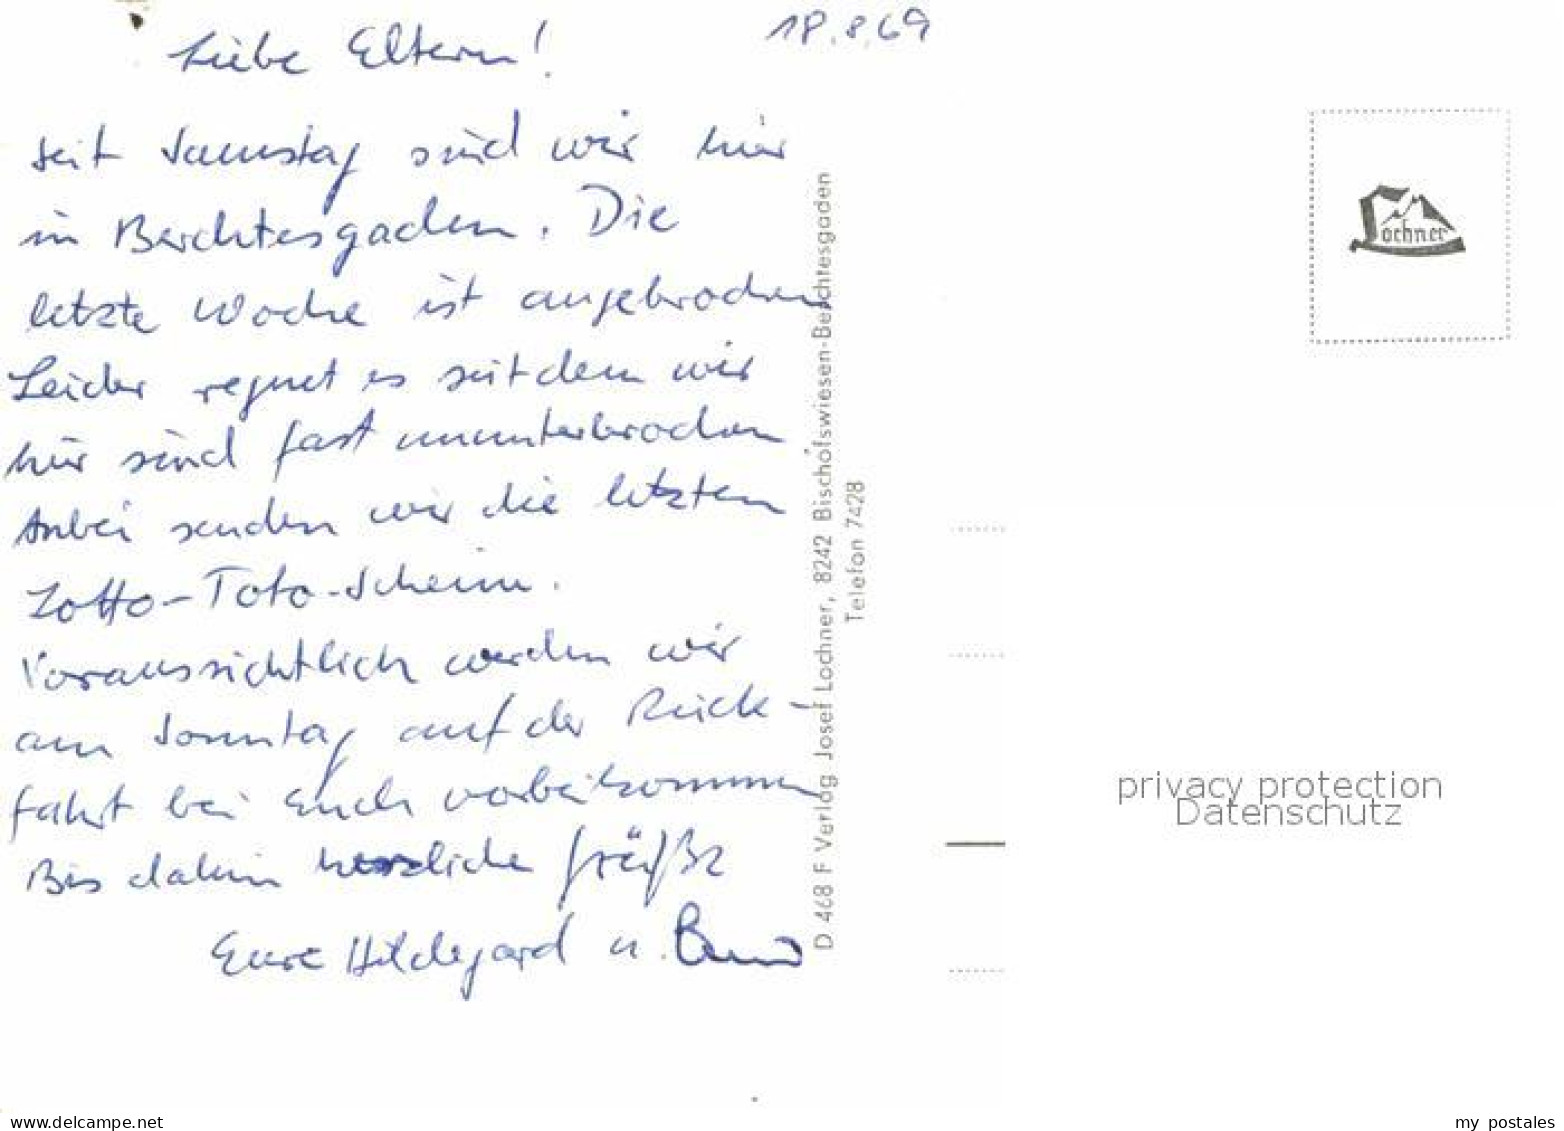 18.8.69
Liebe Eltern!
seit Samstag sind wir hier
in Berchtesgaden. Die
letzte Woche ist angebrochen
Leider regnet es seitdem wir
hier sind fast ununterbrochen
Anbei senden wir die letzten
Lotto-Toto-Scheine.
Voraussichtlich werden wir
am Sonntag auf der Rück-
fahrt bei Euch vorbeikommen
Bis dahin herzliche Grüße
Eure Hildegard u.
D 468 F Verlag Josef Lochner, 8242 Bischofswiesen-Berchtesgaden
Telefon 7428
Lochner
privacy protection
Datenschutz
www.delcampe.net
my postales